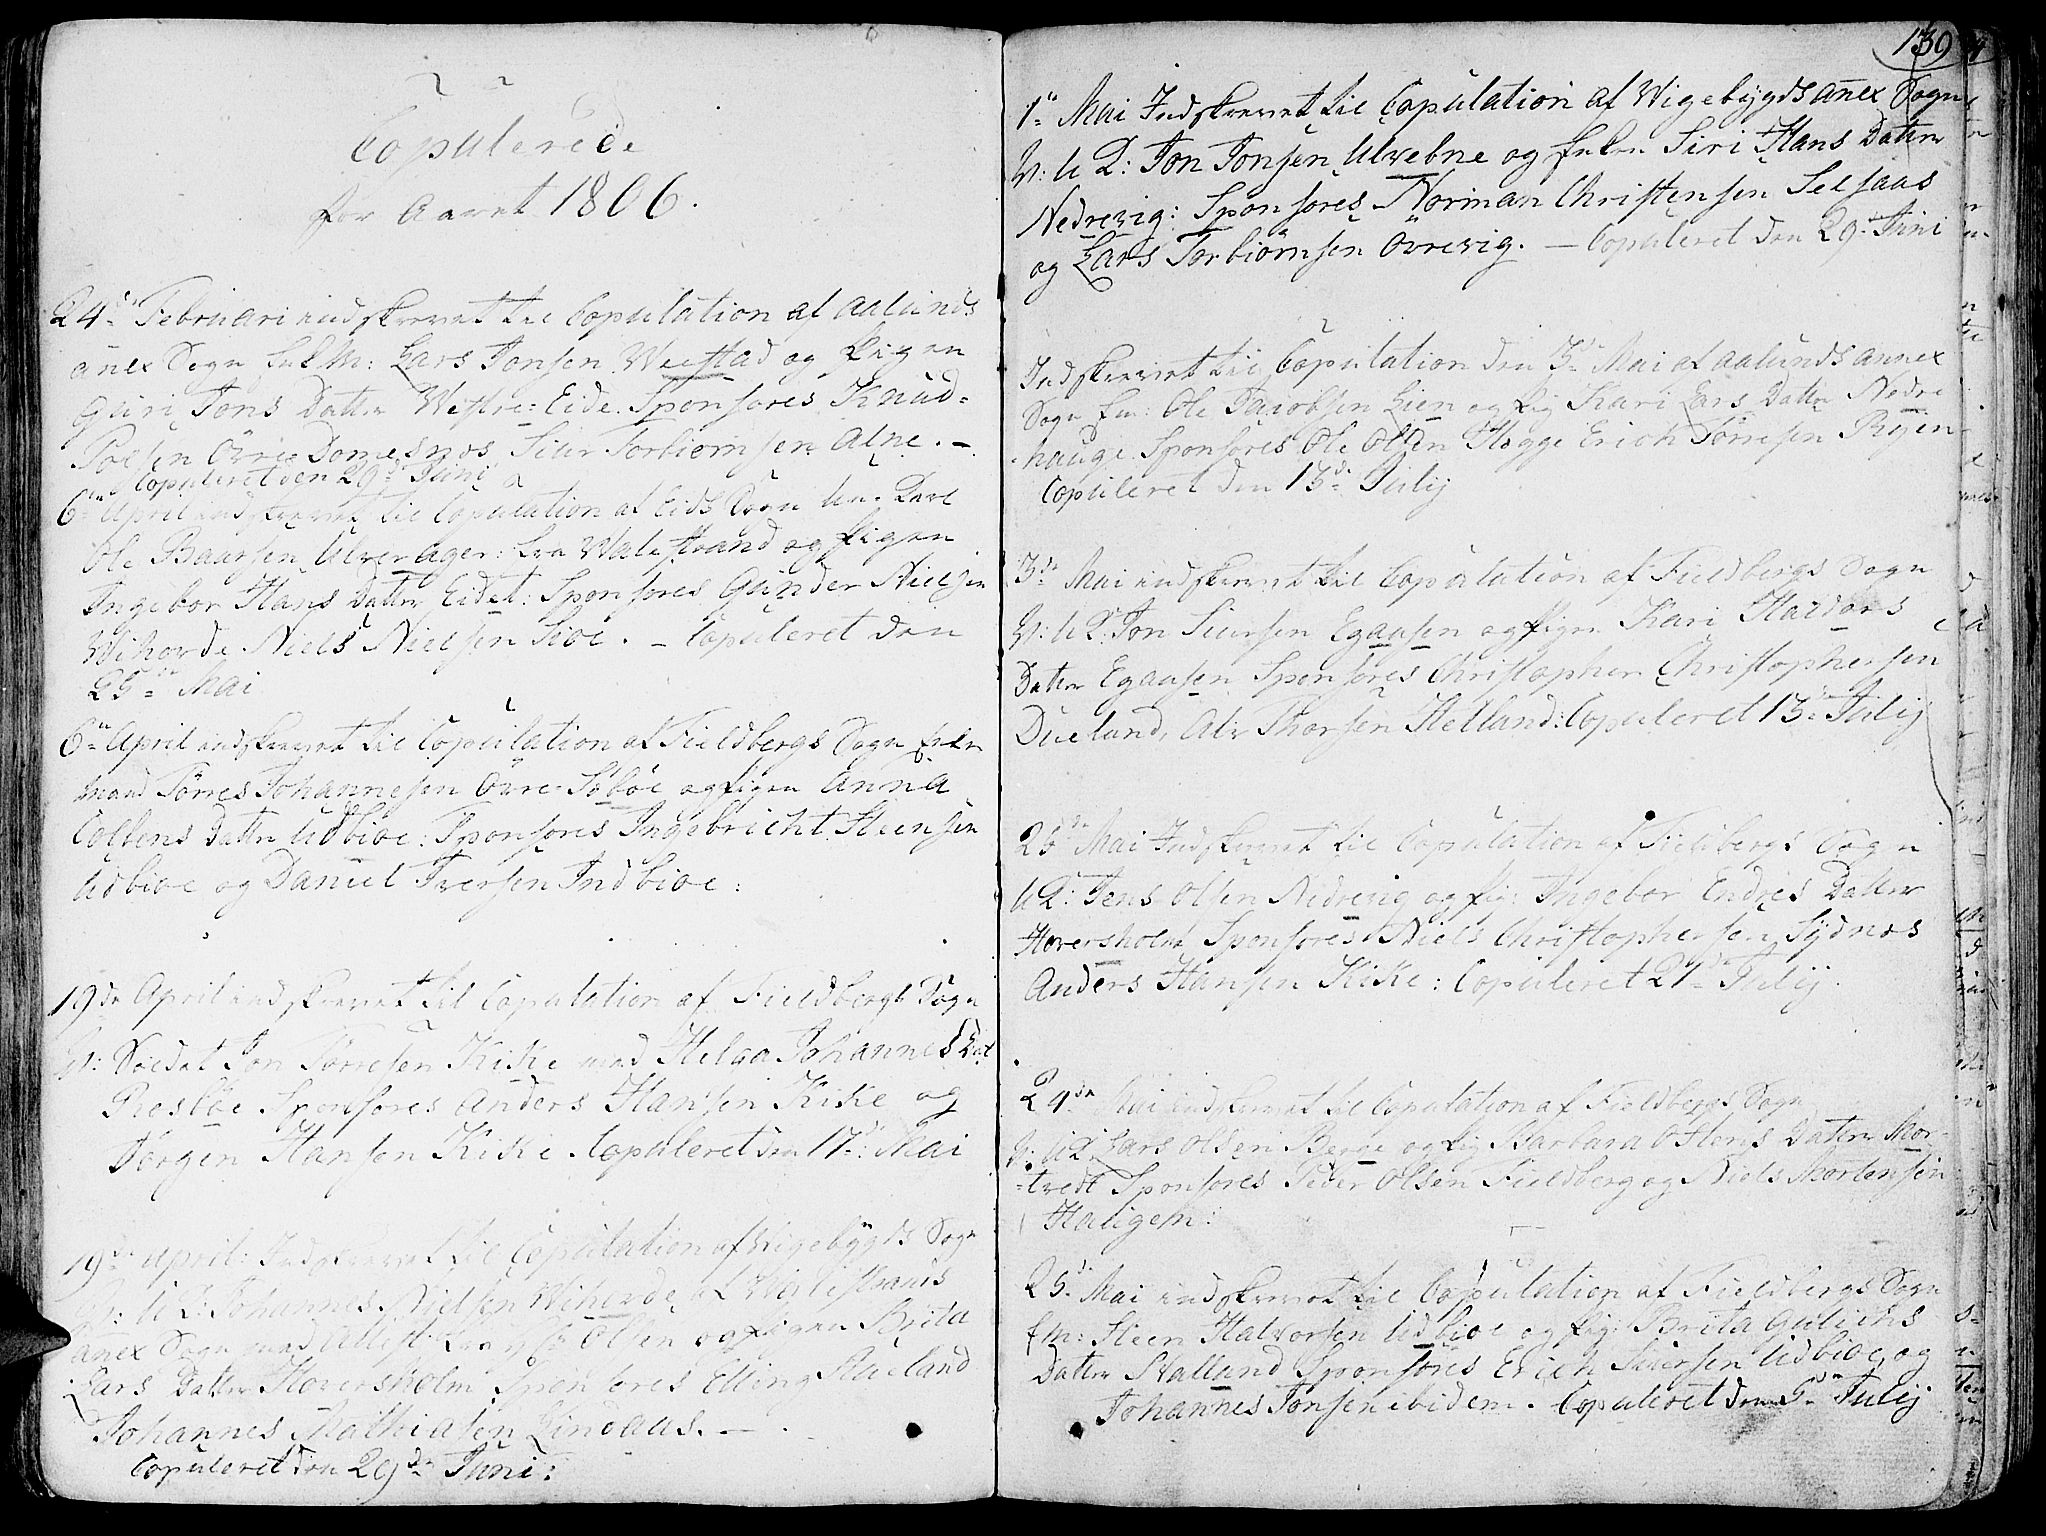 Copulerede
for Aaret 1806.
24de Februari indskrevet til Copulation af Aalunds
anex Sogn Enkm: Lars Jonsen Weestad og Pigen
Guri Jons Datter Westre-Eide. Sponsores Knud-
Polsen Övre Domesnes Siur Torbiornsen Alne. -
Copuleret den 29de Juni
6te April indskrevet til Copulation af Eids Sogn
Ole Baarsen Ulverager: fra Walestrand og Pigen
Ingebor Hans Datter Eidet: Sponsores Gunder Nielsen
Wihovde Niels Nielsen Siöe. - Copuleret den
25de Mai
6te April indskrevet til Copulation af Fieldbergs Sogn Enke
mand Törres Johannesen Övre Söböe og Pigen Anna
Colbens Datter Udbiöe: Sponsores Ingebricht Steensen
Udbiöe og Daniel Iversen Indbiöe:
19de April indskrevet til Copulation af Fieldbergs Sogn
Soldat Jon Törresen Kike med Helga Johannes Dat
Rosböe Sponsores Anders Hansen Kike og
Jörgen Hansen Kike Copuleret den 17de Mai
19de April: Indskrevet til Copulation af Wigebygds Sogn
Johannes Nielsen Wihovde af Walestrands
anex Sogn med Attest fra Olsen og Pigen Brita
Lars Datter Hoversholm Sponsores Elling Staeland
Johannes Mathiasen Lindaas. -
Copuleret den 29de Juni:
139
1te Mai Indskrevet til Copulation af Wigebygds anex Sogn
W: U K: Jon Jonsen Ulvebne og Enken Siri Hans Datter
Nedrevig: Sponsores Norman Christensen Selsaas
og Lars Torbiörnsen Övrevig. - Copuleret den 29de Juni
Indskrevet til Copulation den 3de Mai af Aalunds annex
Sogn Em: Ole Jacobsen Lien og Pig Kari Lars Datter Nedre
hauge Sponsores Ole Olsen Hegge Erich Törresen Ryen-
Copuleret den 13de Julij
3de Mai indskrevet til Copulation af Fieldbergs Sogn
Jon Siursen Egaasen og Pigen Kari Haldors
Datter Egaasen Sponsores Christopher Christophersen
Dueland, Ole Thorsen Helland: Copuleret 13de Julij
26de Mai Indskrevet til Copulation af Fieldbergs Sogn
Jens Olsen Nedrevig og Pig: Ingebor Endres Datter
Hoversholm Sponsores Niels Christophersen Sydnes
Anders Hansen Kike: Copuleret 21de Julij.
24de Mai indskrevet til Copulation af Fieldbergs Sogn
Lars Olsen Berge og Pig Barbara Ostens Datter Mor-
-tvedt Sponsores Peder Olsen Fieldberg og Niels Mortensen
Haugem:
25de Mai indskrevet til Copulation af Fieldbergs Sogn
Em: Steen Halvorsen Udbiöe og Pig: Brita Gulichs
Datter Walland Sponsores Erich Siversen Udbiöe og
Johannes Jonsen ibidem. Copuleret den 5de Julij